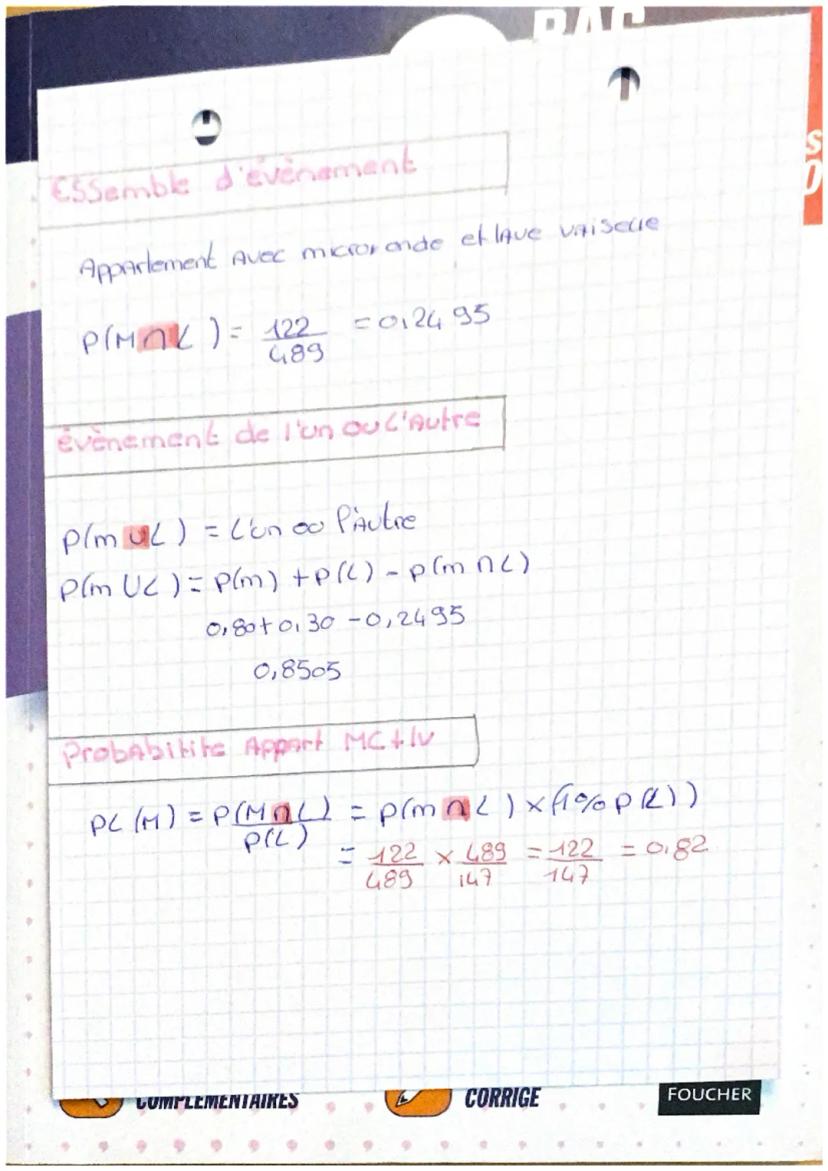 BAC
S
0
ESSemble d'évènement
Appartement Avec microronde et lave vaiselle
P(M∩L) = 122/489 = 0,2495
évènement de l'un ou l'Autre
P(m∪L) = l'un ou l'Autre
P(m∪L) = P(m) + P(L) - P(m∩L)
0,80+0,30 -0,2495
0,8505
Probabitite Appart MC+lv
PL(M) = P(M∩L)/P(L) = P(m∩L) × (1% P(L))
= 122/489 × 489/147 = 122/147 = 0,82
COMPLÉMENTAIRES
CORRIGÉ
FOUCHER